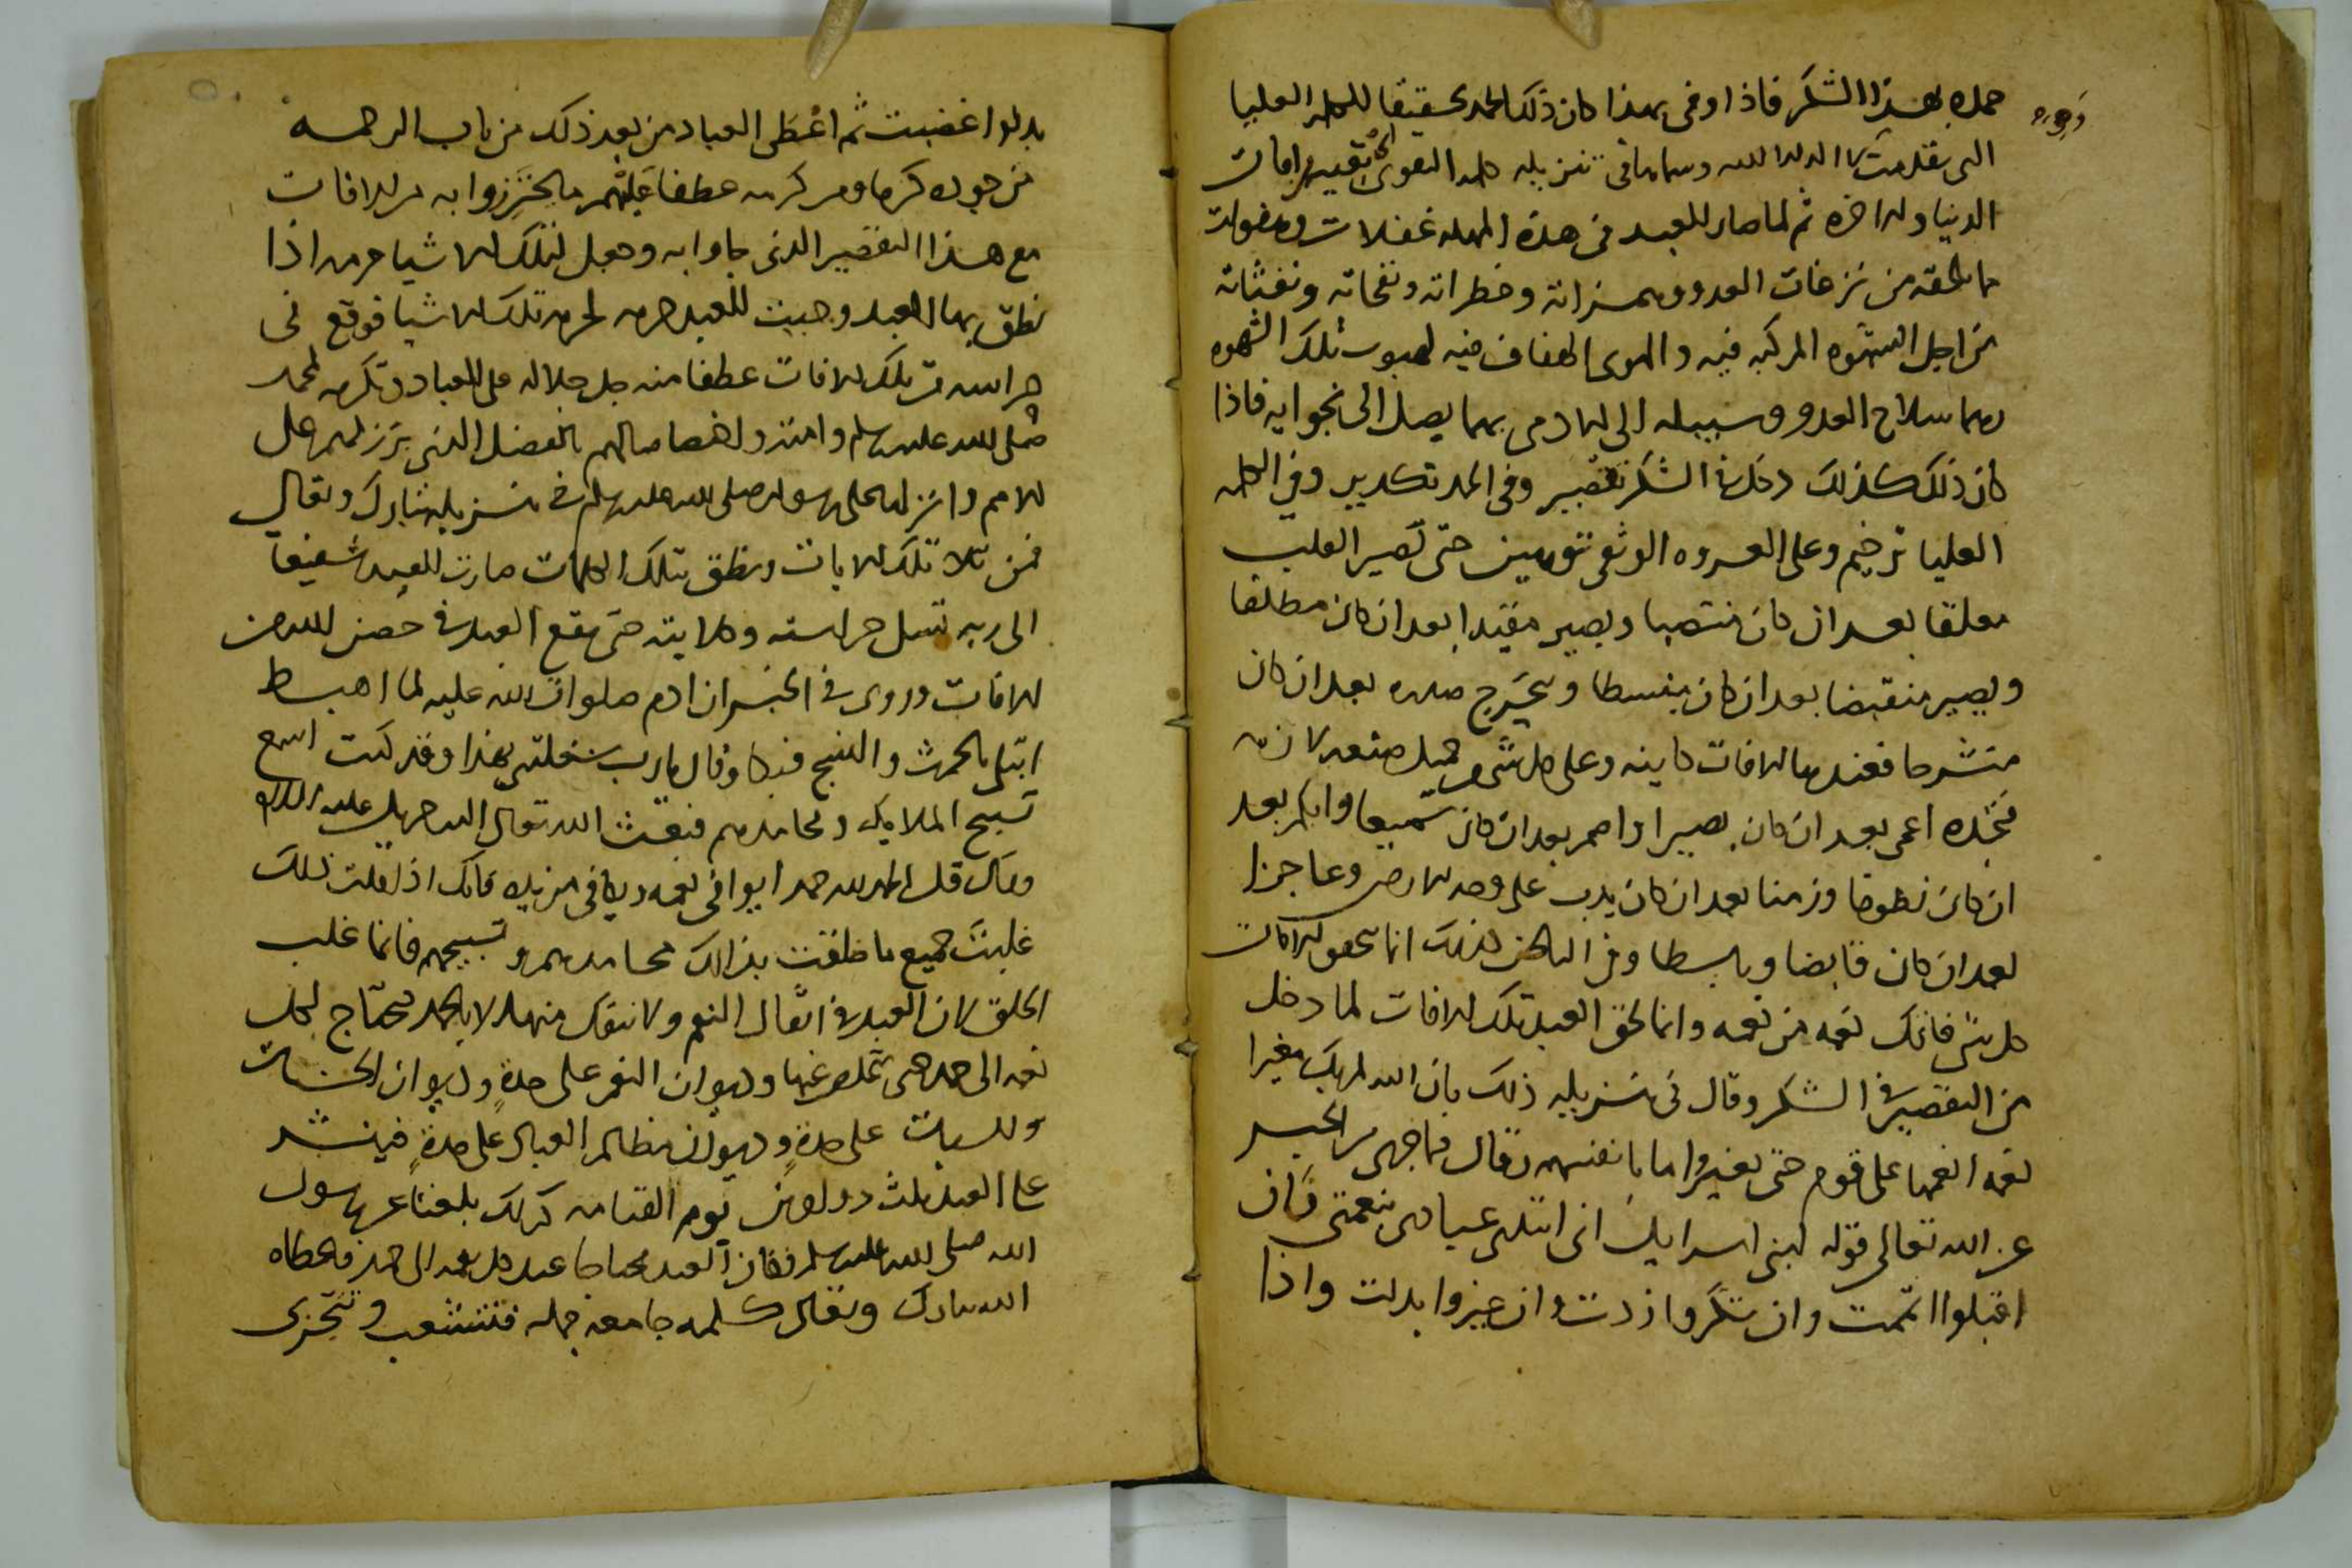 حمده بهذا الشكر فاذا وفى بهذا كان ذلك الحمد تحقيقا للكلمه العليا
التى تقدمت لا اله الا الله وسماها فى تنزيله كلمه التقوى تقيهم افات
الدنيا والاخره ثم لما صار للعبد فى هذه المهله غفلات وهفوات
ما لحقه من نزغات العدو وهمزاته وخطراته ونفخاته ونفثاته
من اجل الشهوه المركبه فيه والهوى الهفاف فيه لهبوب تلك الشهوه
وهما سلاح العدو وسبيله الى الادمى بهما يصل الى نجوايه فاذا
كان ذلك كذلك دخل فى الشكر تقصير وفى الحمد تكدير وفى الكلمه
العليا ترخيم وعلى العروه الوثقى توهين حتى يصير القلب
معلقا بعد ان كان منتصبا ويصير مقيدا بعد ان كان مطلقا
ويصير منقبضا بعد ان كان منبسطا ويحرج صدره بعد ان كان
منشرحا فعندها الافات كاينه وعلى كل شى
فتجده اعمى بعد ان كان بصيرا واصم بعد ان كان سميعا وابكم بعد
ان كان نطوقا وزمنا بعد ان كان يدب على وجه الارض وعاجزا
بعد ان كان قابضا وباسطا وفى الباطن كذلك انما تلحق الافات
كل شى فاتك نعمه من نعمه وانما لحق العبد تلك الافات لما دخل
من التقصير فى الشكر وقال فى تنزيله ذلك بان الله لم يك مغيرا
نعمه انعمها على قوم حتى يغيروا ما بانفسهم وقال فيما جرى من الخبر
عن الله تعالى قوله لبنى اسرايل انى ابتدى عبادى بنعمتى فان
اقبلوا اتممت وان شكروا زدت وان غيروا بدلت واذا
بدلوا غضبت ثم اعطى العباد من بعد ذلك من باب الرحمه
من جوده كرما ومن كرمه عطفا عليهم ما يحترزوا به من الافات
مع هذا التقصير الذى جاوا به وجعل لتلك الاشيا حرمه اذا
نطق بها العبد وجبت للعبد حرمه لحرمه تلك الاشيا فوقع فى
حراسه من تلك الافات عطفا منه جل جلاله على العباد وتكرمه لمحمد
صلى الله عليه وسلم وامته واختصاصا لهم بالفضل الذى برز لهم على
الامم وانزله على رسوله صلى الله عليه وسلم فى تنزيله تبارك وتعالى
فمن تلا تلك الايات ونطق بتلك الكلمات صارت للعبد شفيعا
الى ربه تسل حراسته وكلايته حتى يقع العبد فى حصن الله من
الافات وروى فى الخبر ان ادم صلوات الله عليه لما اهبط
ابتلى بالحرث والنسج فبكا وقال يا رب شغلتنى بهذا وقد كنت اسمع
تسبيح الملايكه ومحامدهم فبعث الله تعالى اليه جبريل عليه السلام
وقال قل الحمد لله حمدا يوافى نعمه ويكافى مزيده فانك اذا قلت ذلك
غلبت جميع ما خلقت بذلك محامدهم وتسبيحهم فانما غلب
الخلق لان العبد فى اثقال النعم ولا ينفك منها الا بالحمد فيحتاج لكل
نعمه الى حمد حتى يتخلص عنها وديوان النعم على حدة وديوان الحسنات
والسيات على حدة وديوان مظالم العباد على حدة فينشر
على العبد ثلث دواوين يوم القيامه كذلك بلغنا عن رسول
الله صلى الله عليه وسلم فكان العبد محتاجا عند كل نعمه الى حمد فاعطاه
الله تبارك وتعالى كلمه جامعه جمله فتتشعب وتتجزى